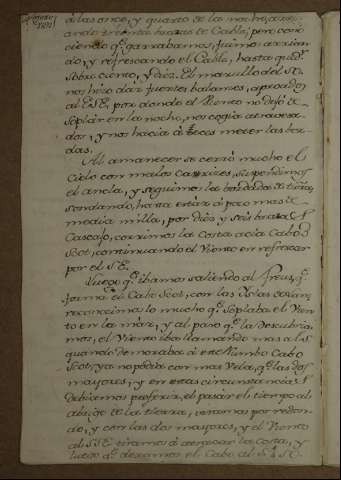 á las once, y quarto de la noche, arri-
ando treinta brazas de Cable; pero cono-
ciendo q.e garrabamos, fuimos arrian-
do, y refrescando el Cable, hasta que
sobre ciento, y diez. El marullo del SE.
nos hizo dar fuertes balances,
al ESE. por donde el Viento no dejó de
soplar en la noche, nos cogia atravesa-
dos, y nos hacia á veces meter las bor-
das.
Al amanecer se cerró mucho el
Cielo con malos Carizes, suspendimos
el ancla, y seguimos la bordada de tierra,
sondando, hasta estar á poco mas de
media milla, por diez y seis brazas
Cascajo, corrimos la Costa acia Cabo de
Scot, continuando el Viento en refrescar
por el SE.
Luego q.e ibamos saliendo al Freu, q.e
forma el Cabo Scot, con las Yslas
reconocimos lo mucho q.e soplaba el Vien-
to en la mar, y al paso q.e la descubria-
mos, el Viento iba llamando mas al S
quando demoraba á este Rumbo Cabo
Scot, ya no podia con mas Vela, q.e las dos
mayores, y en estas circunstancias
debiamos preferir, el pasar el tiempo al
abrigo de la tierra, viramos por redon-
do, y con las dos mayores, y el Viento
al SSE tiramos á atracar la costa, y
luego q.e dejamos el Cabo al